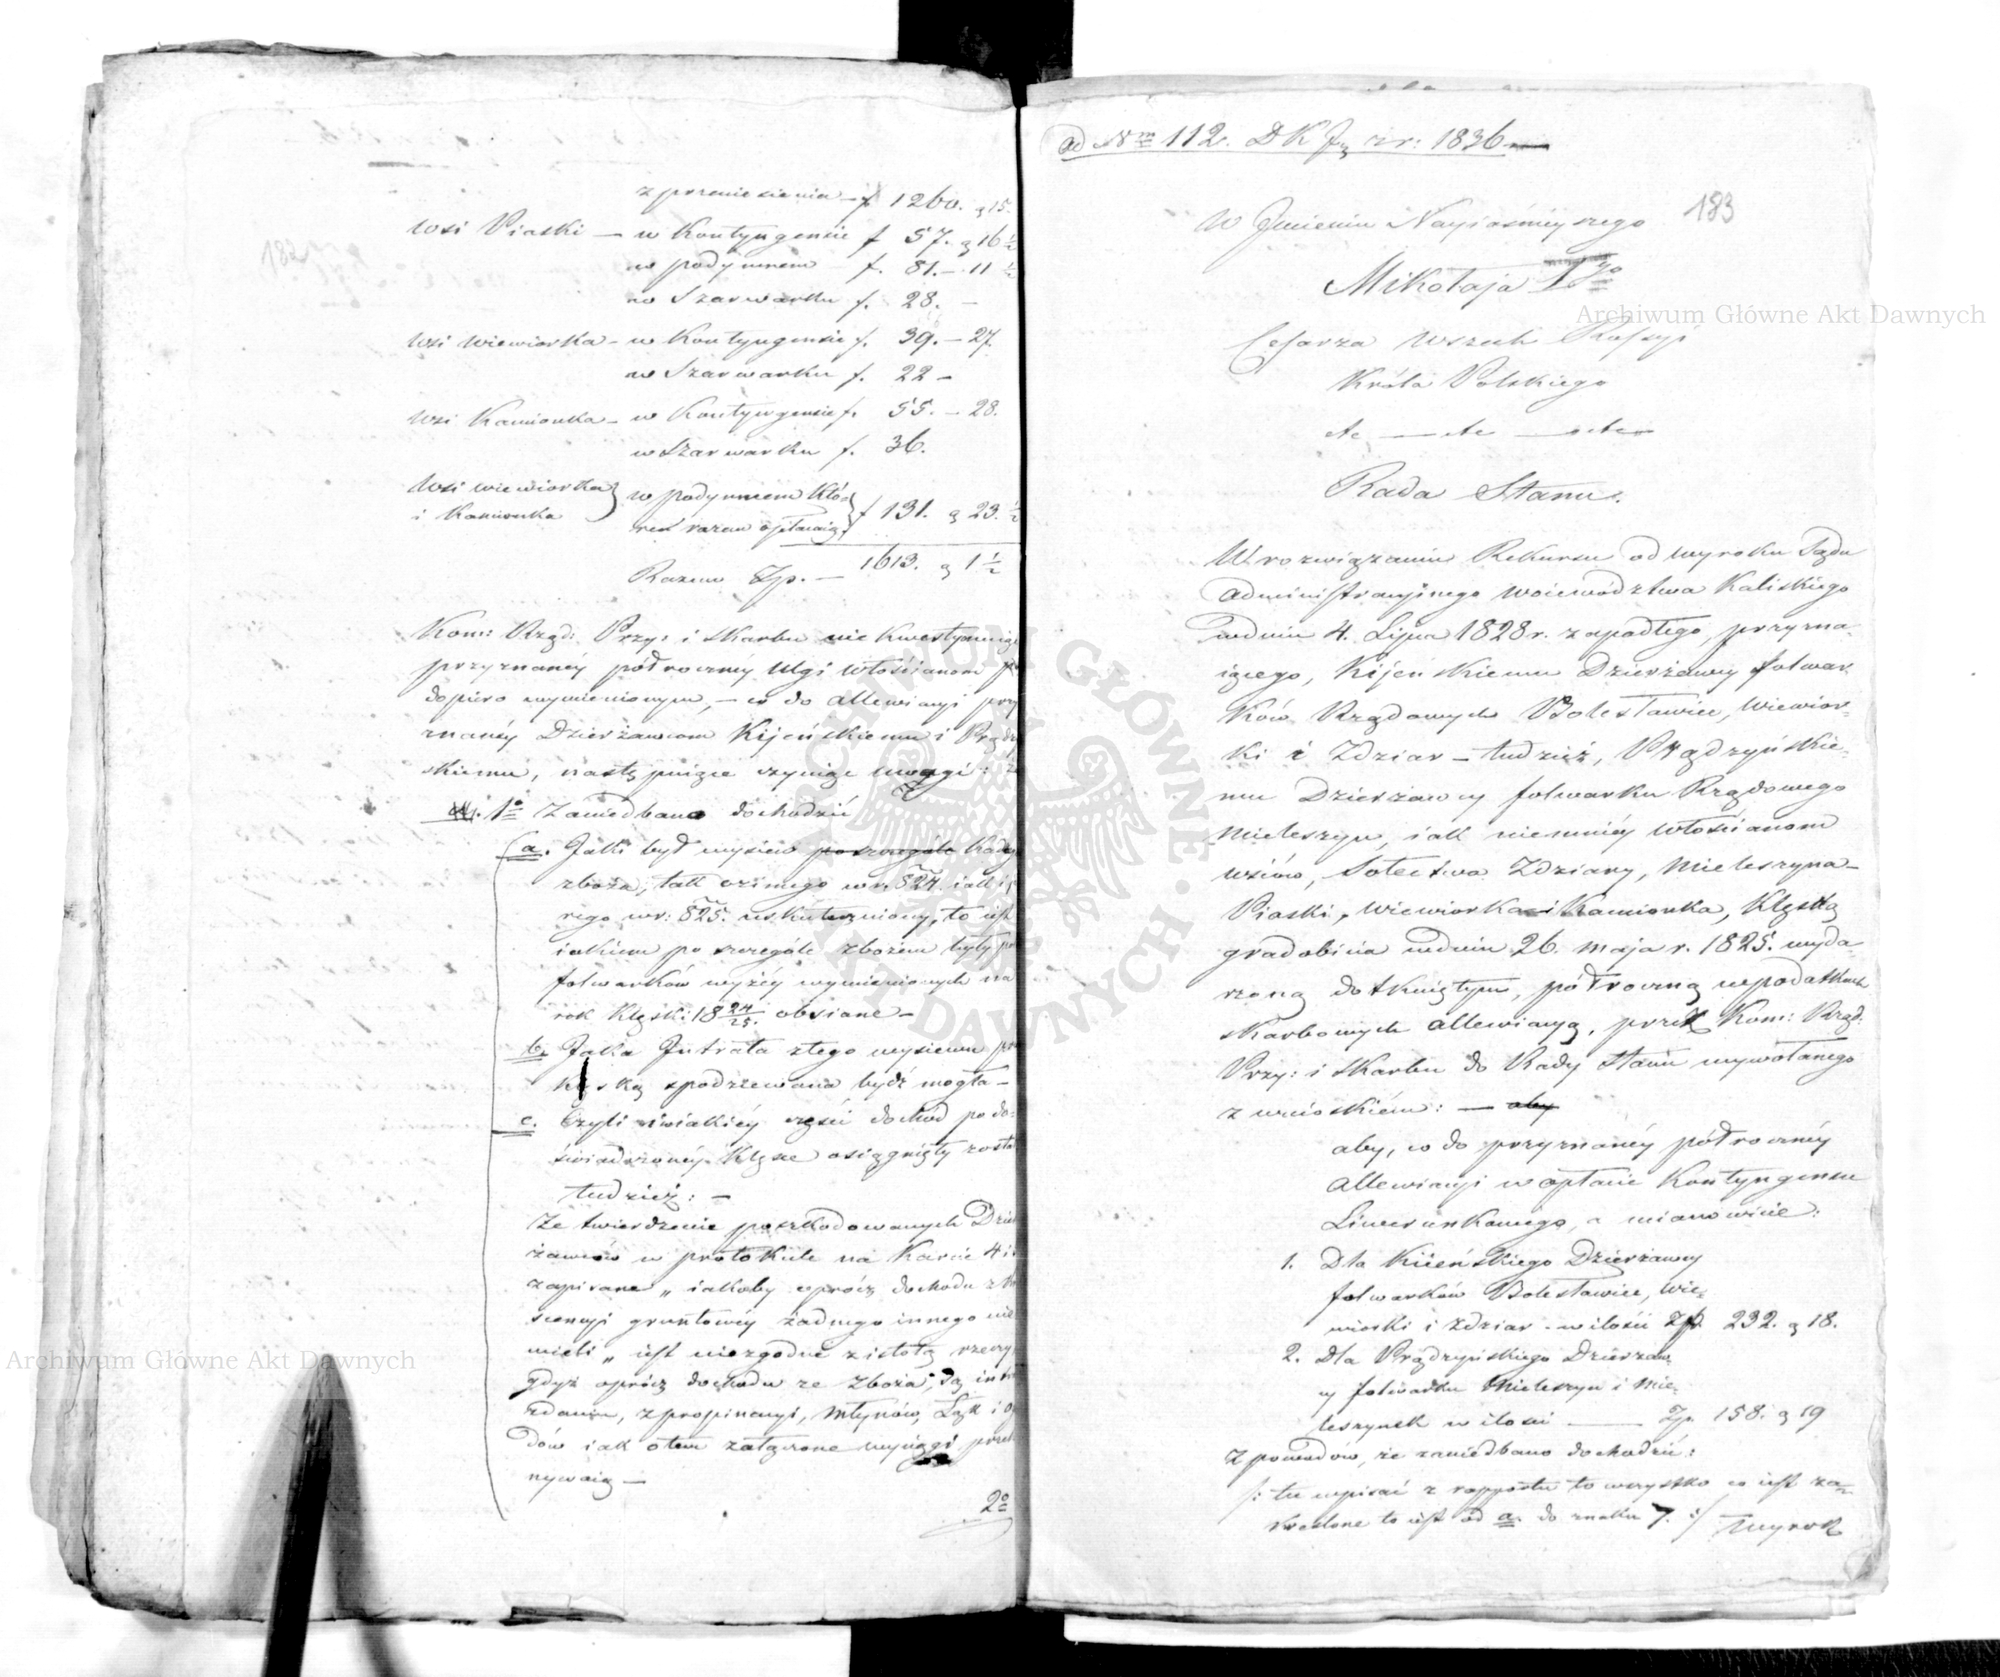 z przeniesienia – f 1260. g 15.
Wsi Piaski – w Kontyngensie f 57. g 16 ½
w podymnem – f. 81. – 11 ½
w Szarwarku f. 28. –
Wsi Wiewiorka – w Kontyngensie f. 39. – 27.
w Szarwarku f. 22 –
Wsi Kamionka – w Kontyngensie f. 55. – 28.
w Szarwarku f. 36.
Wsi Wiewiorka } w podymnem któ-
i Kamionka rne razem opłacaią f 131. g 23. ½
Razem Złp. – 1613. g 1 ½
Kom: Rząd: Przy: i Skarbu nie kwestyonuiąc
przyznanéy półrocznéy ulgi włościanom
dopiero wymienionym, – co do allewiacyi przy
znanéy Dzierżawcom Kijeńskiemu i Prądzyń
skiemu, następuiące czyniąc uwagi: że
1º Zaniedbano dochodzić
a. Jaki był wysiew poszczególe każdego
zboża, tak ozimego w r. 824. iak i ja
rego w r: 825. uskuteczniony, to iest
iakiem po szczególe zbożem były po
folwarków wyżéy wymienionych na
rok klęski 18 24/25. obsiane –
b. Jaka Intrata z tego wysiewu przed
klęską spodziewana bydź mogła –
c. Czyli i w iakiéy części dochód po do-
świadczonéy klęsce osiągnięty został
tudzież: –
Że twierdzenie poszkodowanych Dzier
żawców w protokule na karcie 4 i
zapisane „ iakoby oprócz dochodu z
gruntowéy żadnego innego nie
mieli „ iest niezgodne z istotą rzeczy
gdyż oprócz dochodu ze zboża, są in
z propinacyi, młynów, Łąk i Og
dów iak o tem załączone wyiągi przek
nywaią –
2º
ad Nrm 112. D K J z r: 1836
183
W Imieniu Nayiaśnieyszego
Mikołaja Igo
Cesarza Wszech Rossyi
Króla Polskiego
etc — etc — etc
Rada Stanu.
W rozwiązaniu Rekursu od wyroku Sądu
Administracyjnego Woiewództwa Kaliskiego
w dniu 4. Lipca 1828 r. zapadłego, przyzna-
iącego, Kijeńskiemu Dzierżawcy folwar-
ków Rządowych Bolesławiec, Wiewior-
ki i Zdziar – tudzież, Prądzyńskie-
mu Dzierżawcy folwarku Rządowego
Mieleszyn, iak niemniéy włościanom
wsiów, Sołectwa Zdziary, Mieleszyna –
Piaski, Wiewiorka i Kamionka, klęską
gradobicia w dniu 26. maja r. 1825. wyda-
rzoną dotkniętym, półroczną w podatkach
skarbowych allewiacyą, przez Kom: Rząd:
Przy: i Skarbu do Rady Stanu wywołanego
z wnioskiem: — aby
aby, co do przyznanéy półrocznéy
allewiacyi w opłacie Kontyngensu
Liwerunkowego, a mianowicie:
1. Dla Kijeńskiego Dzierżawcy
folwarków Bolesławiec, Wie-
wiorki i Zdziar – w ilości Złp. 232. g 18.
2. Dla Prądzyńskiego Dzierżaw
cy folwarku Mieleszyn i Mie-
leszynek w ilości — Złp. 158. g 19
z powodów, że zaniedbano dochodzić:
/: tu wpisać z rapportu to wszystko co iest za-
kreślone to iest od a. do znaku 7. :/ Wyrok
Archiwum Główne Akt Dawnych
Archiwum Główne Akt Dawnych
ARCHIWUM GŁÓWNE · AKT DAWNYCH ·